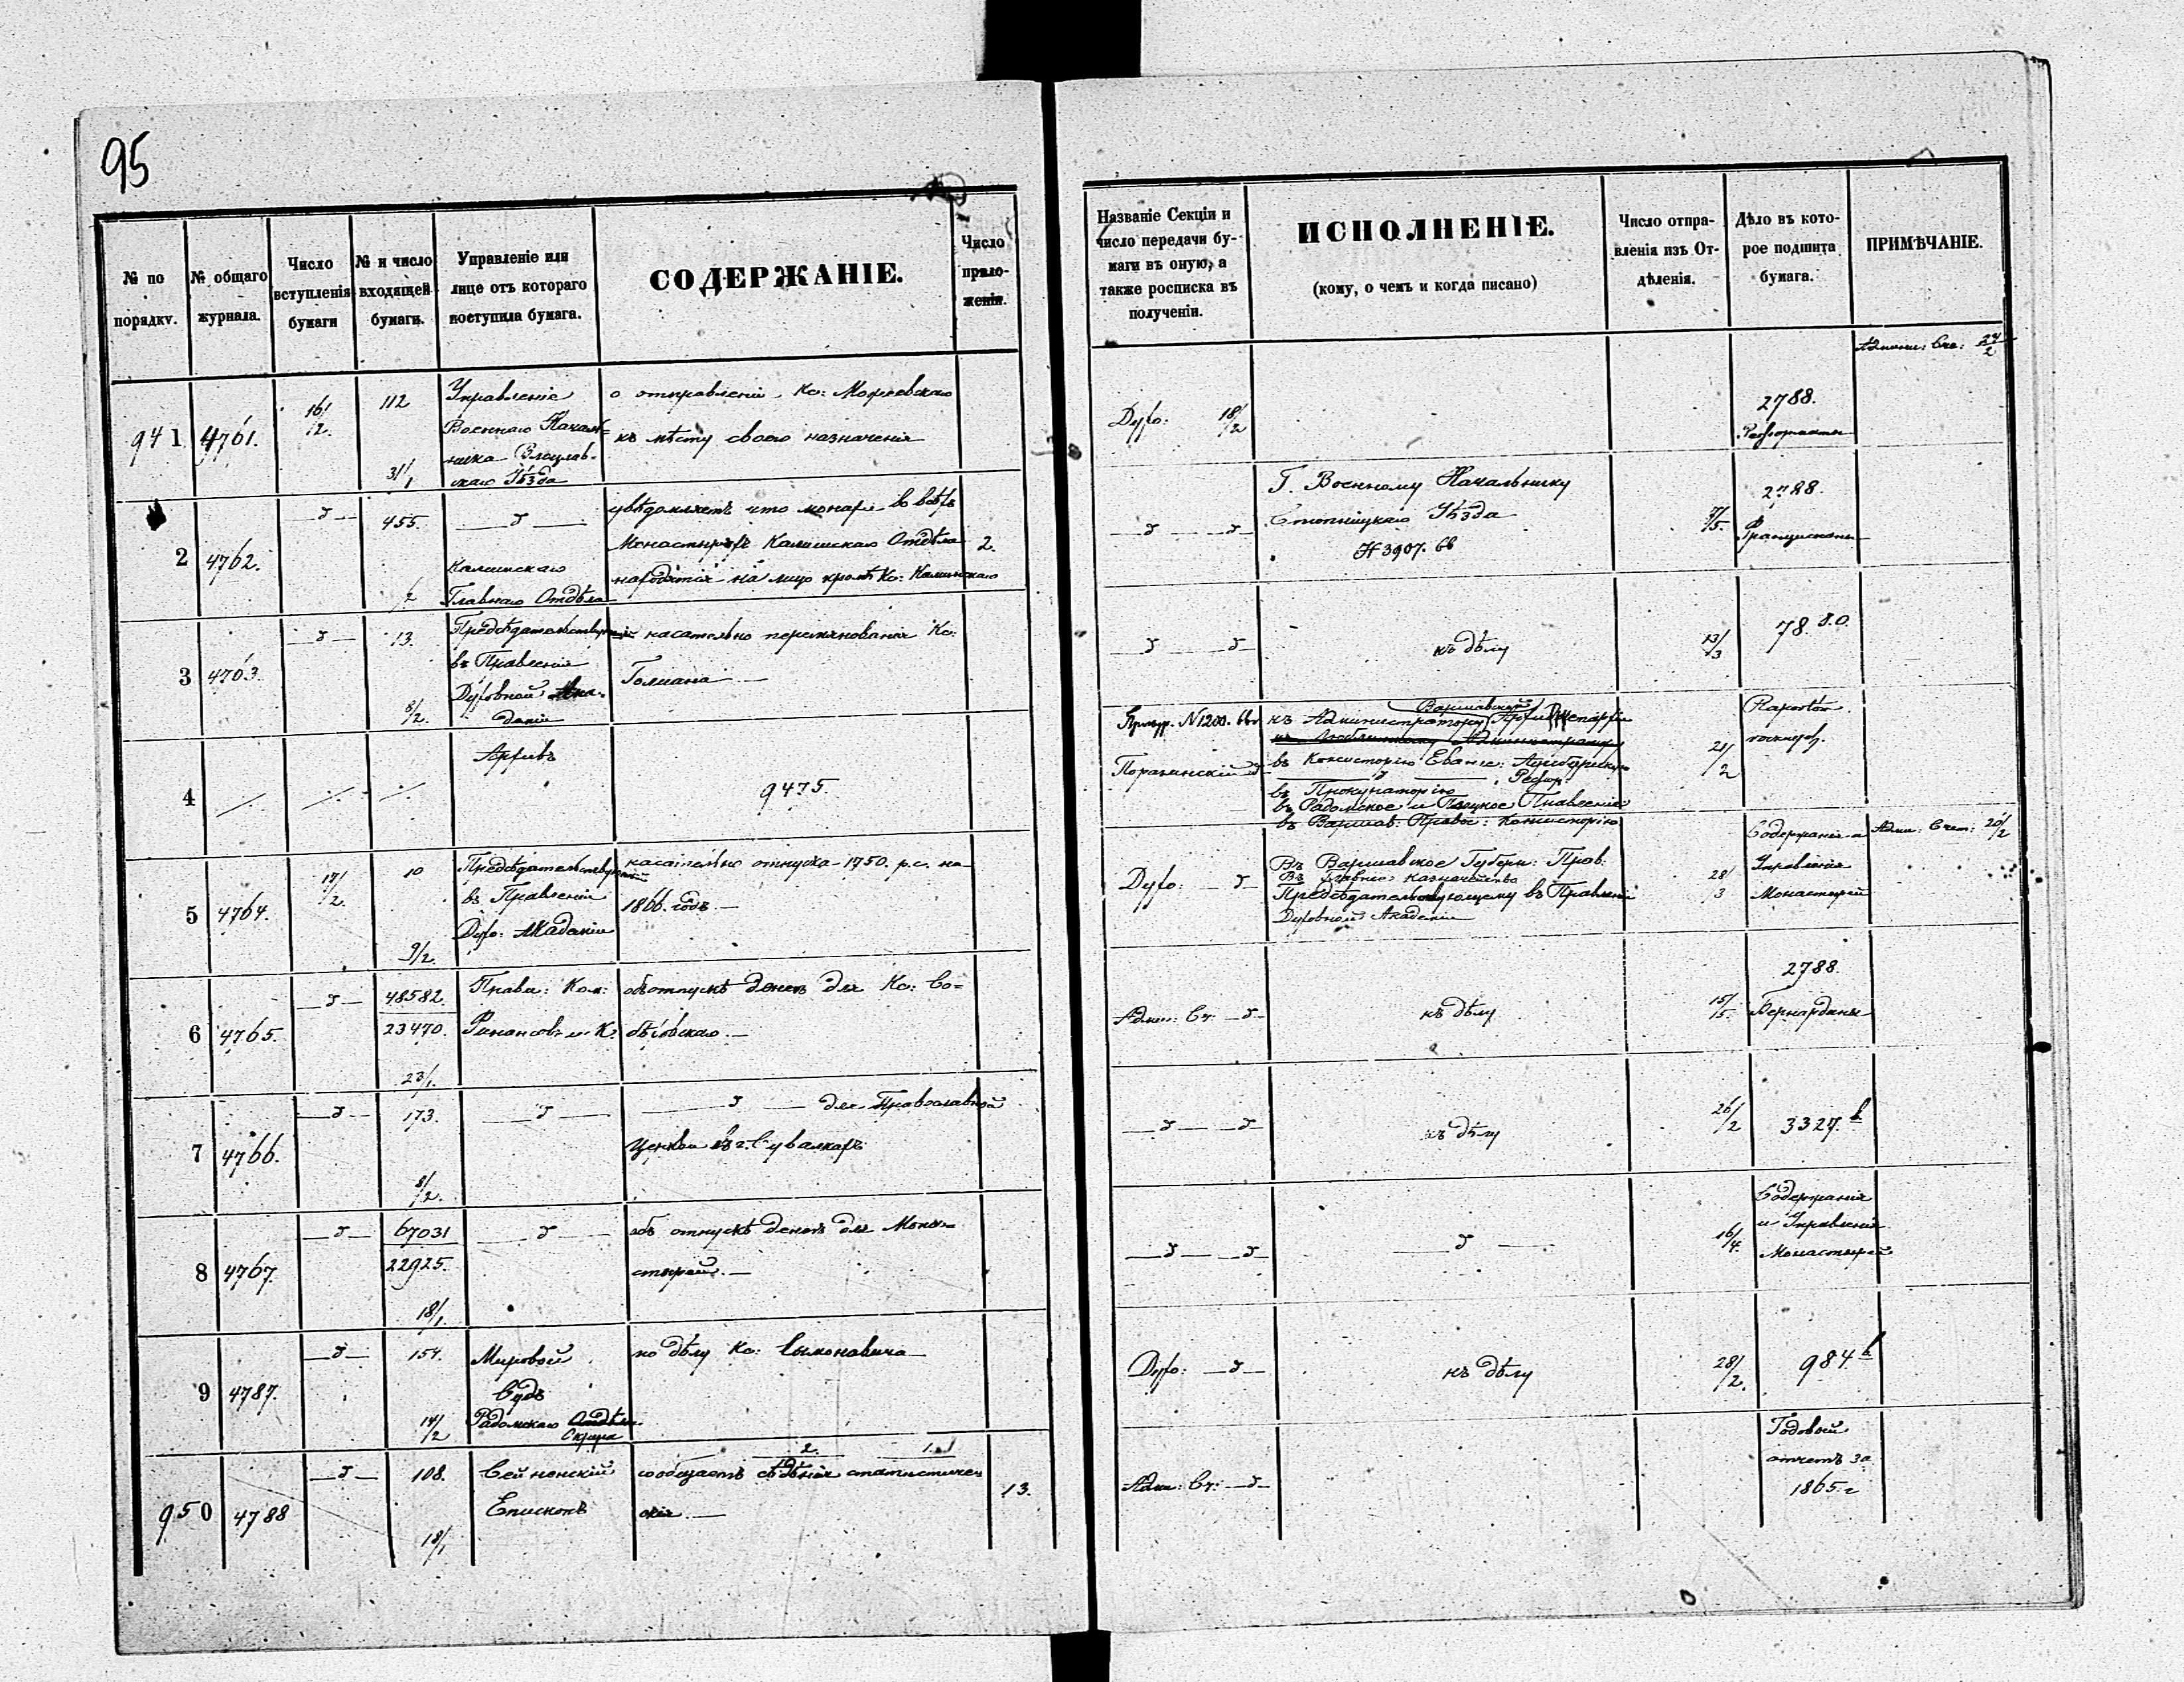 95
№ по порядку.
№ общаго журнала.
Число вступленія бумаги
№ и число входящей бумаги.
Управленіе или лице отъ котораго поступила бумага.
СОДЕРЖАНІЕ.
Число приложенія.
Названіе Секціи и число передачи бумаги въ оную, а также росписка въ полученіи.
ИСПОЛНЕНІЕ.
(кому, о чемъ и когда писано)
Число отправленія изъ Отдѣленія.
Дѣло въ которое подшита бумага.
ПРИМѢЧАНІЕ.
941 4761. 16/2. 112 31/1
Управленіе
Военнаго Началь-
ника Влоцлав-
скаго Уѣзда
о отправленіи Кс:
къ мѣсту своего назначенія
Духо: 18/2
2788.
Реформаты
24/2
2 4762. 455. /2
Калишскаго
Главнаго Отдѣла
увѣдомляетъ что монахи во всѣхъ
Монастыряхъ Калишскаго Отдѣла 2.
находятся на лицо кромѣ Кс: Калинскаго
Г. Военному Начальнику
Стопницкаго Уѣзда
№ 3907. 66
2788.
Францискане
3 4763. 13. 8/2.
Предсѣдательствующій
въ Правленіи
Духовной Ака-
деміи
касательно переименованія Кс:
Голиана
къ дѣлу
13/3
78. 8.0.
4
Архивъ
9475.
N 1200. 66
Варшавской
къ Администратору Архи Епархіи
въ Консисторію Еванг: Аугсбургскую
Рефор:
въ Прокураторію
въ Радомское и Плоцкое Правленія
въ Варшав: Правос: Консисторію
21/2
Raportów
5 4764. 17/2. 10 9/2.
Предсѣдательствующій
въ Правленіи
Духо: Академіи
касательно отпуска 1750. р.с. на
1866. годъ.
Духо:
Въ Варшавское Губерн: Прав:
Въ Главное Казначейство
Предсѣдательствующему въ Правленіи
Духовной Академіи
28/3
Содержанія и
Управленія
Монастырей
Адми: Счет: 20/2
6 4765. 48582. 23470. 23/1.
Прави: Ком:
Финансовъ и К.
объ отпускѣ денегъ для Кс: Со-
бѣювскаго.
Адми: Сч:
къ дѣлу
15/5.
2788.
Бернардины
7 4766. 173. 8/2.
для Православной
Церкви въ г. Сувалкахъ
къ дѣлу
26/2
3327. b
8 4767. 67031 22925. 18/1.
объ отпускѣ денегъ для Мона-
стырей.
16/4.
Содержанія
и Управленія
Монастырей
9 4787. 154. 14/2
Мировой
Судъ
Радомскаго
Округа
по дѣлу Кс: Сымоновича
Духо:
къ дѣлу
28/2.
984. b
950 4788 108. 18/1
Сейненскій
Епископъ
2. 1.
сообщаетъ свѣдѣнія статистичес
кія. 13.
Адми: Сч:
Годовый
отчетъ за
1865. г